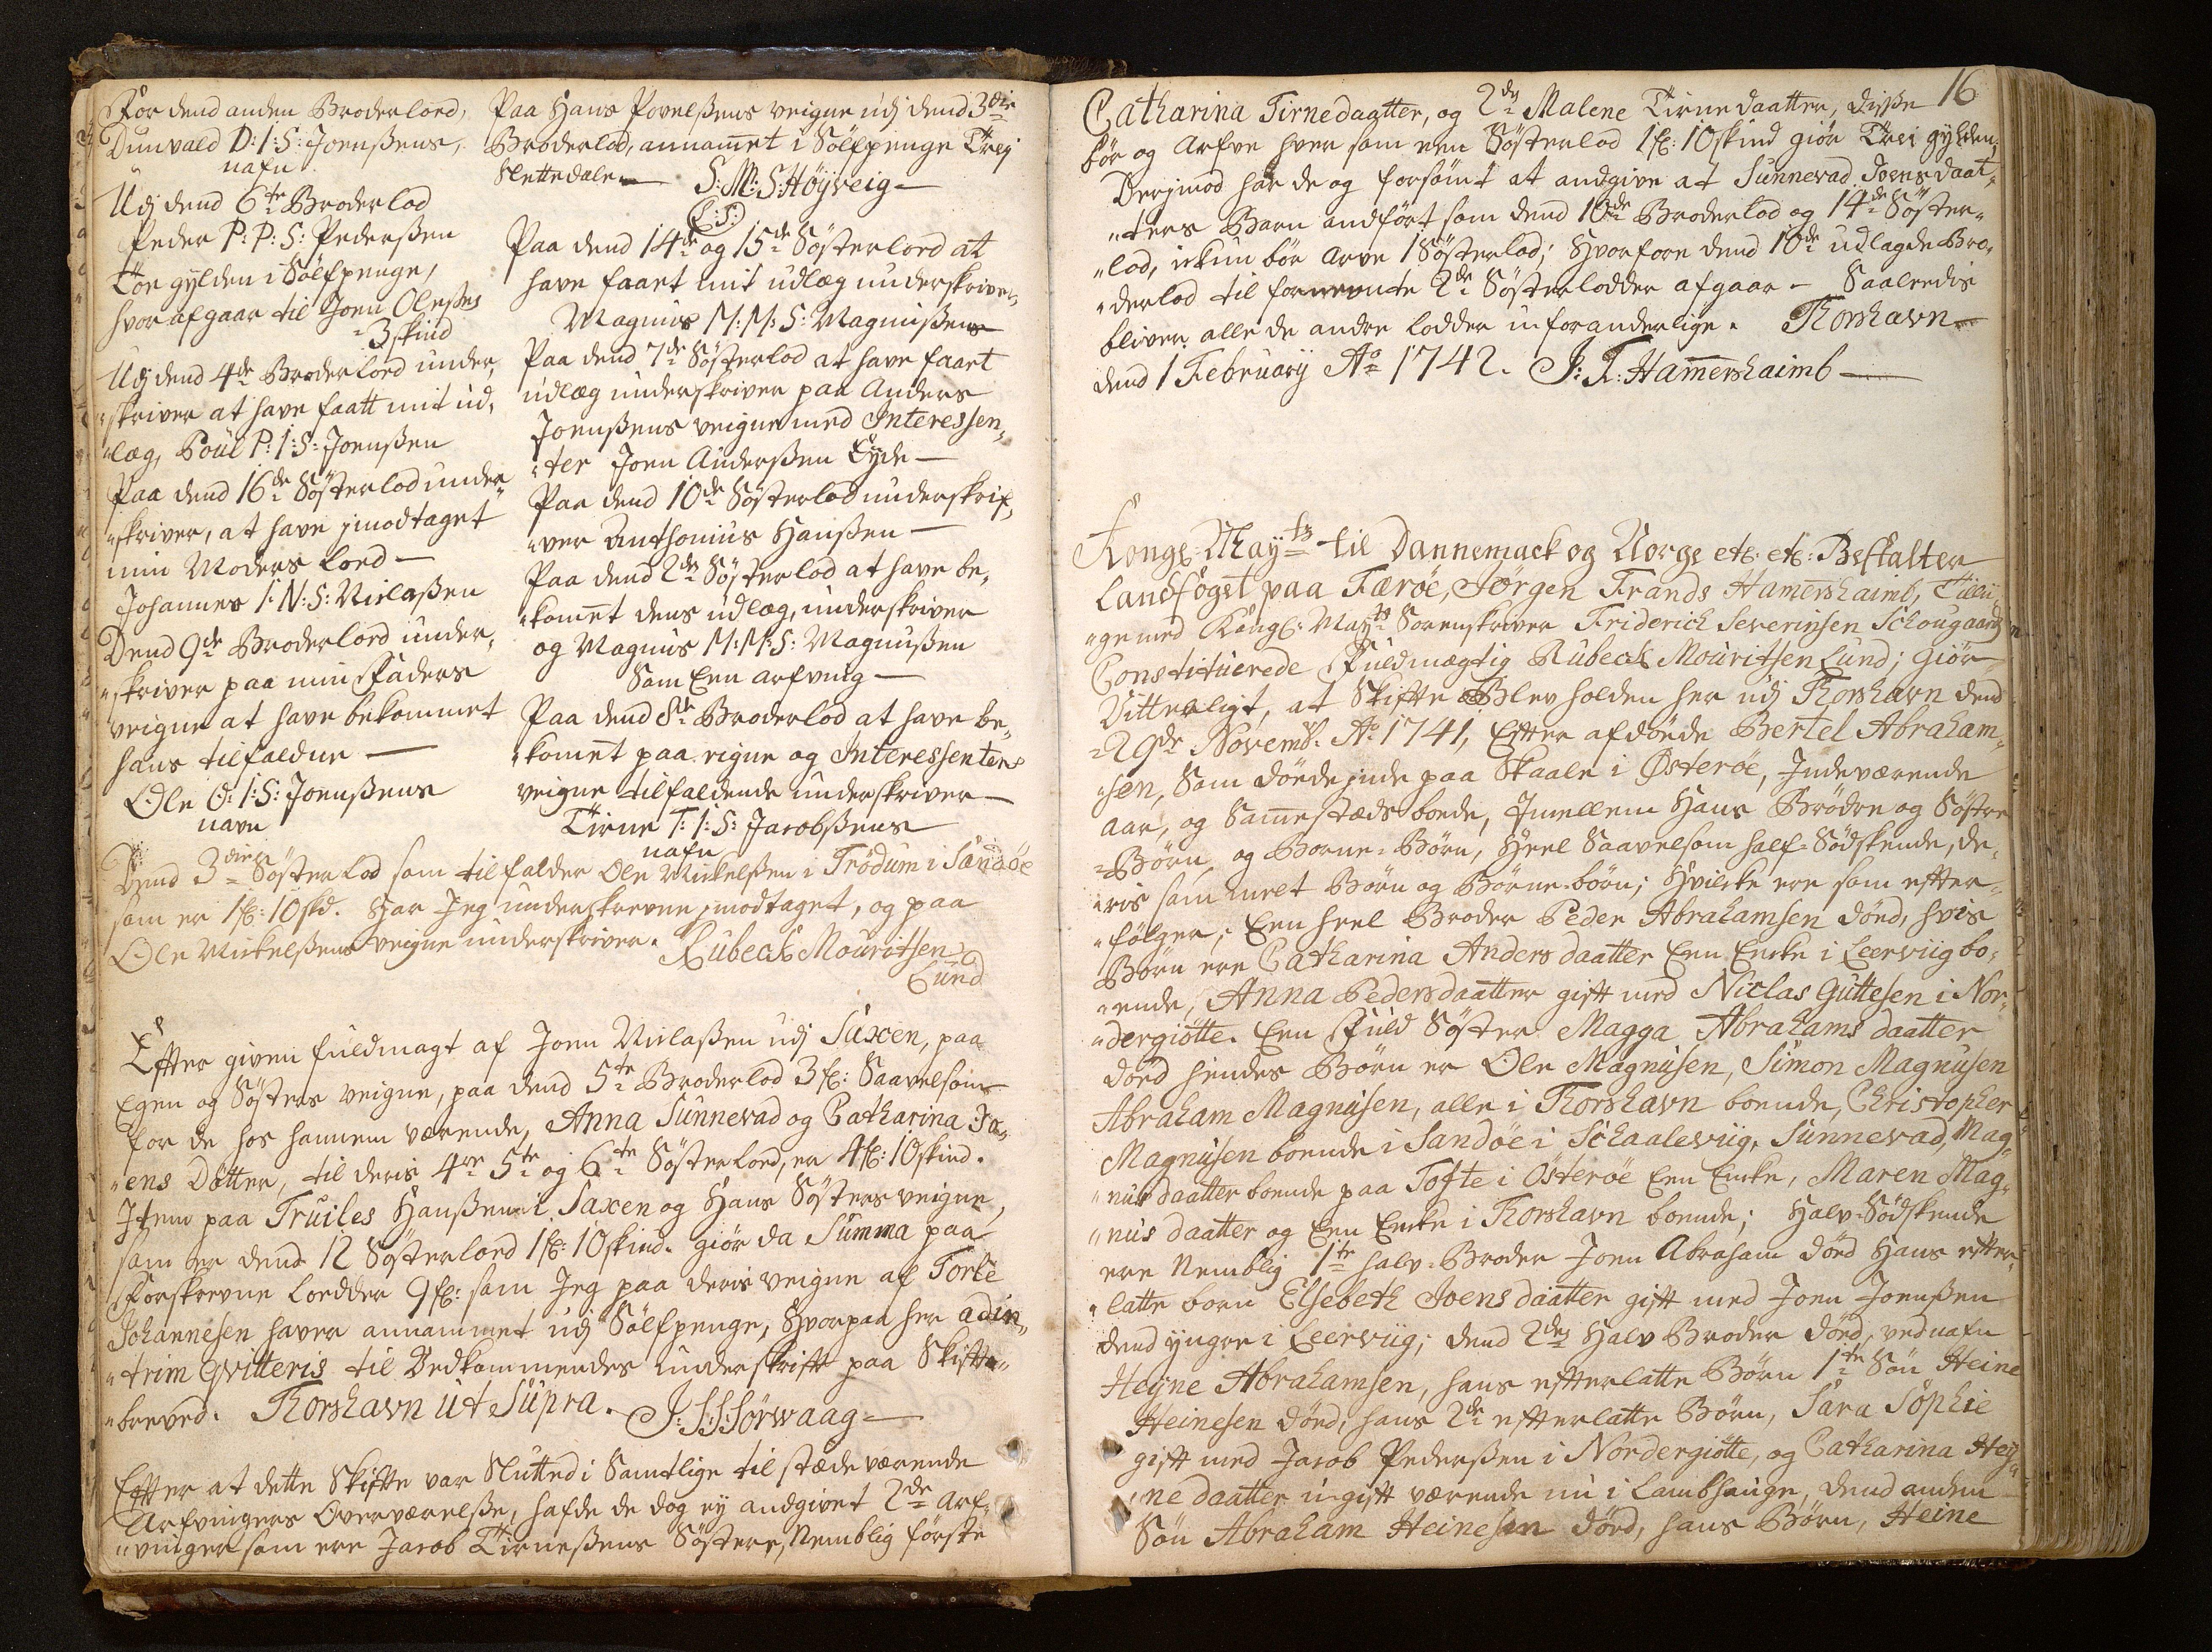 For dend anden Broderlord,
Dunvald D: I: S: Joenßens,
nafn
Udj dend 6te Broderlod
Peder P: P: S: Pederßen
Toe gylden i Sölfpenge,
hvor afgaar til Joen Oleßes
3 skind
Udj dend 4de Broderlord under,
skriver at have faatt mit ud,
læg, Poul P: I: S: Joenßen
Paa dend 16de Søsterlod under
skriver, at have jmodtaget
min Moders lord —
Johannes I: N: S: Niclaßen
Dend 9de Broderlord under,
skriver paa min Faders
veigne at have bekommet
hans tilfaldne —
Ole O: I: S: Joenßens
navn
Paa Hans Povelßens veigne udj dend 3die
Broderlod, annamet i Sölfpenge Trej
Slettedale — S: M: S: Höyveig —
(L: S:)
Paa dend 14de og 15de Søsterlord at
have faaet mit udlæg underskriver,
Magnus M: M: S: Magnußens
Paa dend 7de Søsterlod at have faaet
udlæg underskriver paa Anders
Joenßens veigne med Interessen,
ter Joen Anderßen Eyde —
Paa dend 10de Søsterlod underskrif,
ver Anthonius Hanßen —
Paa dend 2den Søsterlod at have be,
komet dens udlæg, underskriver
og Magnus M: M: S: Magnußen
Som Een arfving —
Paa dend 8de Broderlod at have be,
komet paa eigne og Interessenters
veigne tilfaldende underskriver —
Tirne T: I: S: Jacobßens
nafn
Dend 3die Søster lod som tilfalder Ole Mickelßen i Trödum i Sandöe
som er 1 fl: 10 skd. Har Jeg underskrevne jmodtaget, og paa
Ole Mickelßens veigne underskriver. Rubech Mouritsen
Lund
Efter given fuldmagt af Joen Niclaßen udj Saxen, paa
Egen og Søsters veigne, paa dend 5te Broderlod 3 fl: Saavelsom
for de hos hannem værende, Anna Sunnevad og Catharina Jo,
ens Døtter, til deris 4re 5te og 6te Søsterlord, er 4 fl: 10 skind.
Item paa Truiles Hanßen i Saxen og Hans Søsters veigne,
som er dend 12 Søsterlord 1 fl: 10 skind. giør da Summa paa
Forskrevne Lordder 9 fl: som Jeg paa deris veigne af Torke
Johannesen haver annammet udj Sölfpenge, Hvorpaa her adin,
trim Qvitteris til Vedkommendes underskrift paa Skifte,
breved. Thorshavn ut Supra. J: S: S: Sörwaag —
Efter at dette Skifte var Slutted i Samtlige tilstædeværende
Arfvingers Overværelße, hafde de dog ey andgivet 2de Arf,
vinger som ere Jacob Tirneßens Søstere, Nemblig første
16
Catharina Tirnedaatter, og 2den Malene Tirnedaatter, diße
bör og Arfve hver som een Søsterlod 1 fl: 10 skind giør Trei gylden
Derjmod har de og forsömt at andgive at Sunnevad Joensdaat,
ters Barn andført som dend 10de Broderlod og 14de Søster,
lod, ickun bör Arve 1 Søsterlod; Hvorfore dend 10de udlagde Bro,
derlod til fornevnte 2de Søsterlodder afgaar — Saaledis
bliver alle de andre Lodder uforanderlige. Thorshavn
dend 1 Februarij Ao 1742. J: F: Hamershaimb —
Kongl: Mayts til Dannemarck og Norge etc: etc: Bestalter
Landfogst paa Færöe, Jörgen Frands Hamershaimb, Tilli,
ge med Kongl: Mayts Sorenskriver Friderich Severinsen Schougaard
Constituerede Fuldmægtig Rubech Mouritsen Lund; giør
Vitterligt, at Skifte Blev holden her udj Thorshavn dend
29de Novembr. Ao 1741, Efter afdöde Bertel Abraham,
sen, Som döde jnde paa Skaale i Østeröe, Indeværende
aar, og Sammestæds boede, Imellem Hans Brödre og Søstre
Børn og Borne-Børn, Heel Saavelsom half-Södskende, de,
ris sammelt Børn og Børne-børn; Hvilcke ere som efter,
følger; Een heel Broder Peder Abrahamsen död, hvis
Börn ere Catharina Anders daatter Een Encke i Leerviig bo,
ende, Anna Pedersdaatter gift med Niclas Guttesen i Nor,
dergiötte. Een Fuld Søster Magga Abrahams daatter
död hendes Børn er Ole Magnusen, Simon Magnusen
Abraham Magnusen, alle i Thorshavn boende, Christopher
Magnusen boende i Sandöe i Schaaleviig, Sunnevad, Mag,
nus daatter boende paa Tofte i Österöe Een Encke, Maren Mag,
nus daatter og Een Encke i Thorshavn boende; Halv-Södskende
ere Nemblig 1te halv-Broder Joen Abraham död Hans efter,
latte born Elsebeth Joens daatter gift med Joen Joenßen
dend yngre i Leerviig; dend 2den Halv Broder död, ved nafn
Heyne Abrahamsen, hans efterlatte Børn 1te Sön Heine
Heinesen död, hans 2de efterlatte Børn, Sara Sophie
gift med Jacob Pederßen i Nordergiötte, og Catharina Hey,
ne daatter ugift værende nu i Lambhauge, dend anden
Sön Abraham Heinesen död, hans Børn, Heine